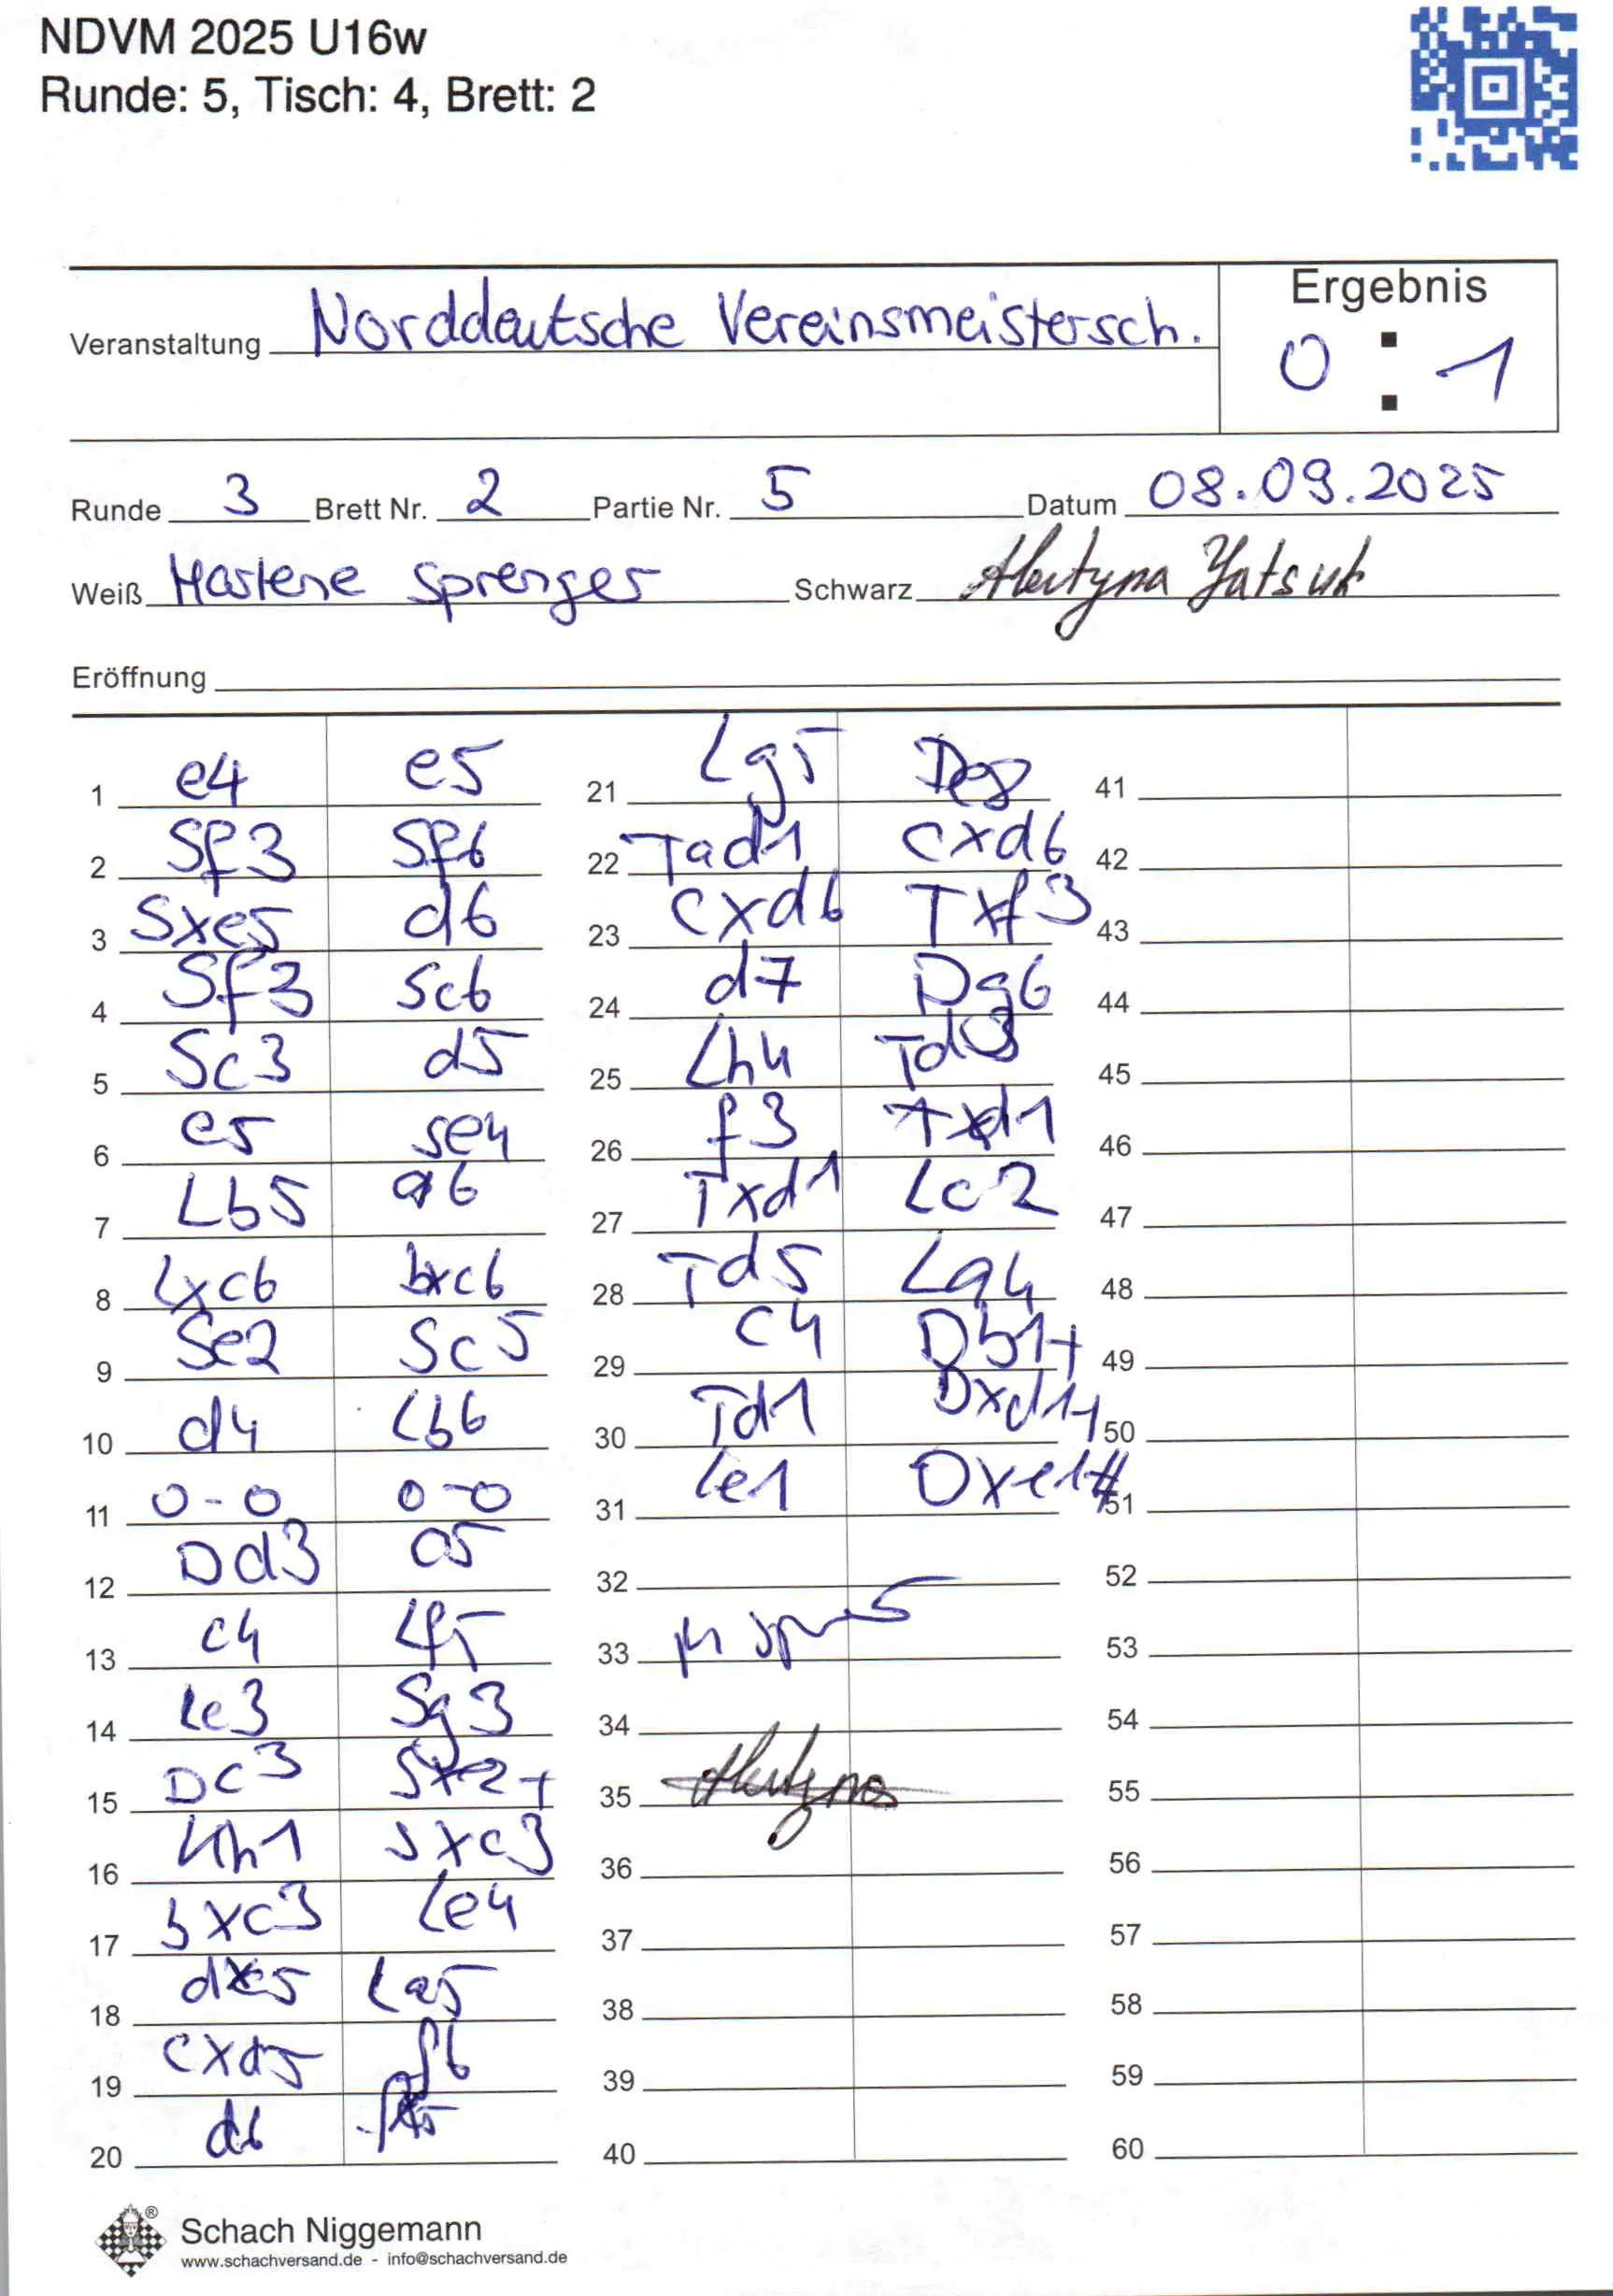 NDVM 2025 U16w
Runde: 5, Tisch: 4, Brett: 2
Veranstaltung Norddeutsche Vereinsmeistersch.
Ergebnis
0 : 1
Runde 3 Brett Nr. 2 Partie Nr. 5 Datum 08.09.2025
Weiß Marlene Sprenger Schwarz Yatsuk
Eröffnung
1 e4 e5
2 Sf3 Sf6
3 Sxe5 d6
4 Sf3 Sc6
5 Sc3 d5
6 e5 Se4
7 Lb5 a6
8 Lxc6 bxc6
9 Se2 Sc5
10 d4 Lb6
11 0-0 0-0
12 Dd3 a5
13 c4 Lf5
14 Le3 Sg3
15 Dc3 Sxe2+
16 Kh1 Sxc3
17 bxc3 Le4
18 dxc5 La5
19 cxd5 f6
20 d6
21 Lg5 De8
22 Tad1 cxd6
23 cxd6 Txf3
24 d7 Dg6
25 Lh4 Td3
26 f3 Txd1
27 Txd1 Lc2
28 Td5 La4
29 c4 Db1+
30 Td1 Dxd1+
31 Le1 Dxe1#
32
33
34
35
36
37
38
39
40
41
42
43
44
45
46
47
48
49
50
51
52
53
54
55
56
57
58
59
60
Schach Niggemann
www.schachversand.de - info@schachversand.de